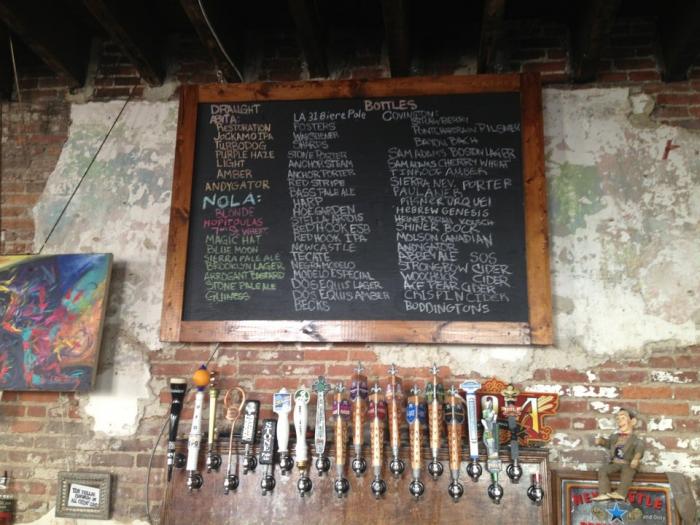 DRAUGHT
ABITA:
RESTORATION
JOCKAMO IPA
TURBODOG
PURPLE HAZE
LIGHT
AMBER
ANDYGATOR
NOLA:
BLONDE
HOPITOULAS
7TH ST WHEAT
MAGIC HAT
BLUE MOON
SIERRA PALE ALE
BROOKLYN LAGER
ARROGANT BASTARD
STONE PALE ALE
GUINESS
BOTTLES
LA 31 Biere Pale
FOSTERS
STONE PORTER
ANCHOR STEAM
ANCHOR PORTER
RED STRIPE
BASS PALE ALE
HARP
HOEGARDEN
STELLA ARTOIS
RED HOOK ESB
RED HOOK IPA
NEWCASTLE
TECATE
NEGRA MODELO
MODELO ESPECIAL
DOS EQUIS LAGER
DOS EQUIS AMBER
BECKS
COVINGTON:
STRAWBERRY
PONTCHARTRAIN PILSNER
SAM ADAMS BOSTON LAGER
SAM ADAMS CHERRY WHEAT
AMBER
SIERRA NEV. PORTER
PAULANER
PILSNER URQUEL
HEBREW GENESIS
SHINER BOCK
MOLSON CANADIAN
ABBEY ALE SOS
STRONGBOW CIDER
WOODCHUCK CIDER
ACE PEAR CIDER
CRISPIN CIDER
BODDINGTONS
NEWCASTLE